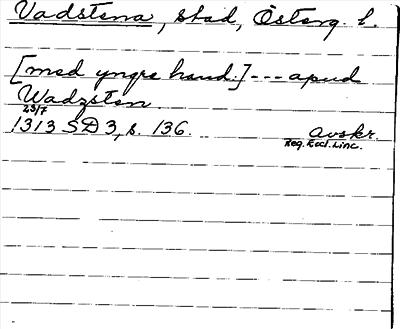 Vadstena, stad, Österg. l.
[med yngre hand.] --- apud
Wadzsten.
23/7
1313 SD 3, s. 136. avskr.
Reg. Eccl. Linc.